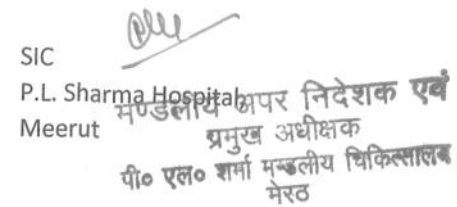 SIC
P.L. Sharma Hospital,
Meerut
मण्डलीय अपर निदेशक एवं
प्रमुख अधीक्षक
पी० एल० शर्मा मण्डलीय चिकित्सालय
मेरठ